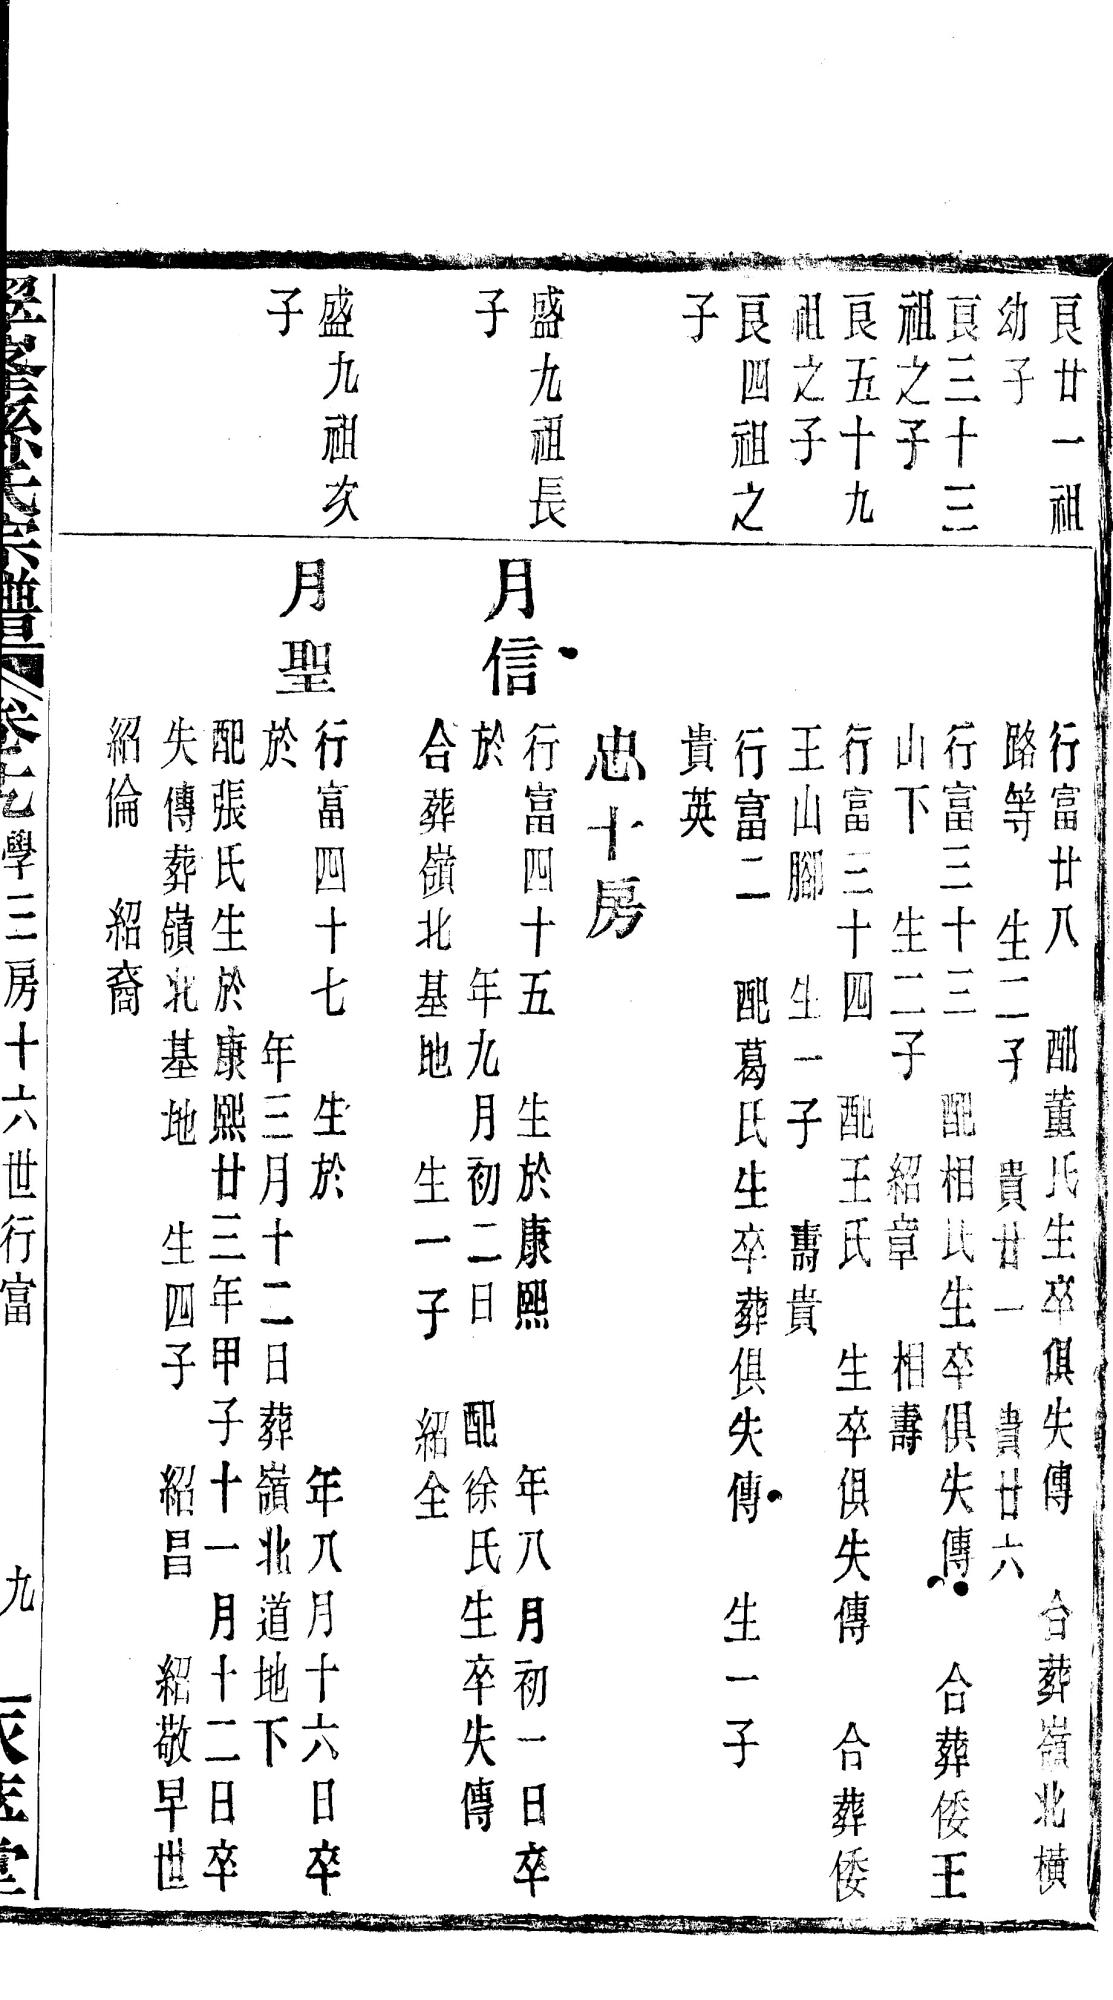 良廿一祖
幼子
行富廿八 配董氏生卒俱失傳 合葬嶺北橫
路等 生二子 貴廿一 貴廿六
良三十三
祖之子
行富三十三 配相氏生卒俱失傳 合葬倭王
山下 生二子 紹章 相壽
良五十九
祖之子
行富三十四 配王氏 生卒俱失傳 合葬倭
王山腳 生一子 壽貴
良四祖之
子
行富二 配葛氏生卒葬俱失傳 生一子
貴英
忠十房
盛九祖長
子
月信
行富四十五 生於康熙 年八月初一日卒
於 年九月初二日 配徐氏生卒失傳
合葬嶺北基地 生一子 紹全
盛九祖次
子
月聖
行富四十七 生於 年八月十六日卒
於 年三月十二日葬嶺北道地下
配張氏生於康熙廿三年甲子十一月十二日卒
失傳葬嶺北基地 生四子 紹昌 紹敬早世
紹倫 紹裔
孫氏宗譜 卷七 學三房十六世行富 九 堂